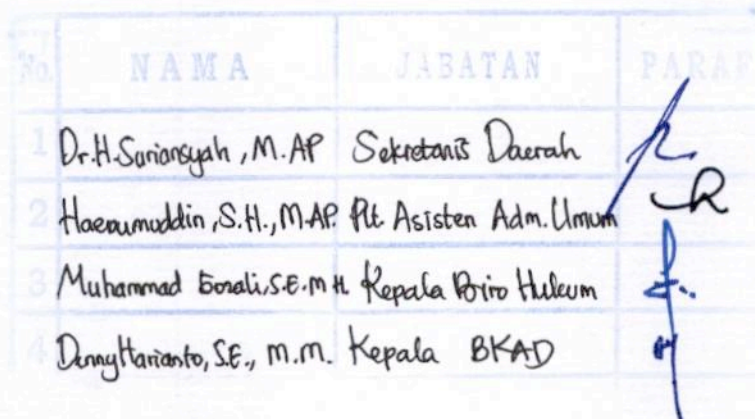 No. NAMA JABATAN PARAF
1 Dr.H.Suriansyah, M.AP Sekretaris Daerah
2 Haerumuddin, S.H., M.AP. Plt. Asisten Adm. Umum
3 Muhammad Gozali, S.E. M.H. Kepala Biro Hukum
4 Denny Harianto, S.E., M.M. Kepala BKAD